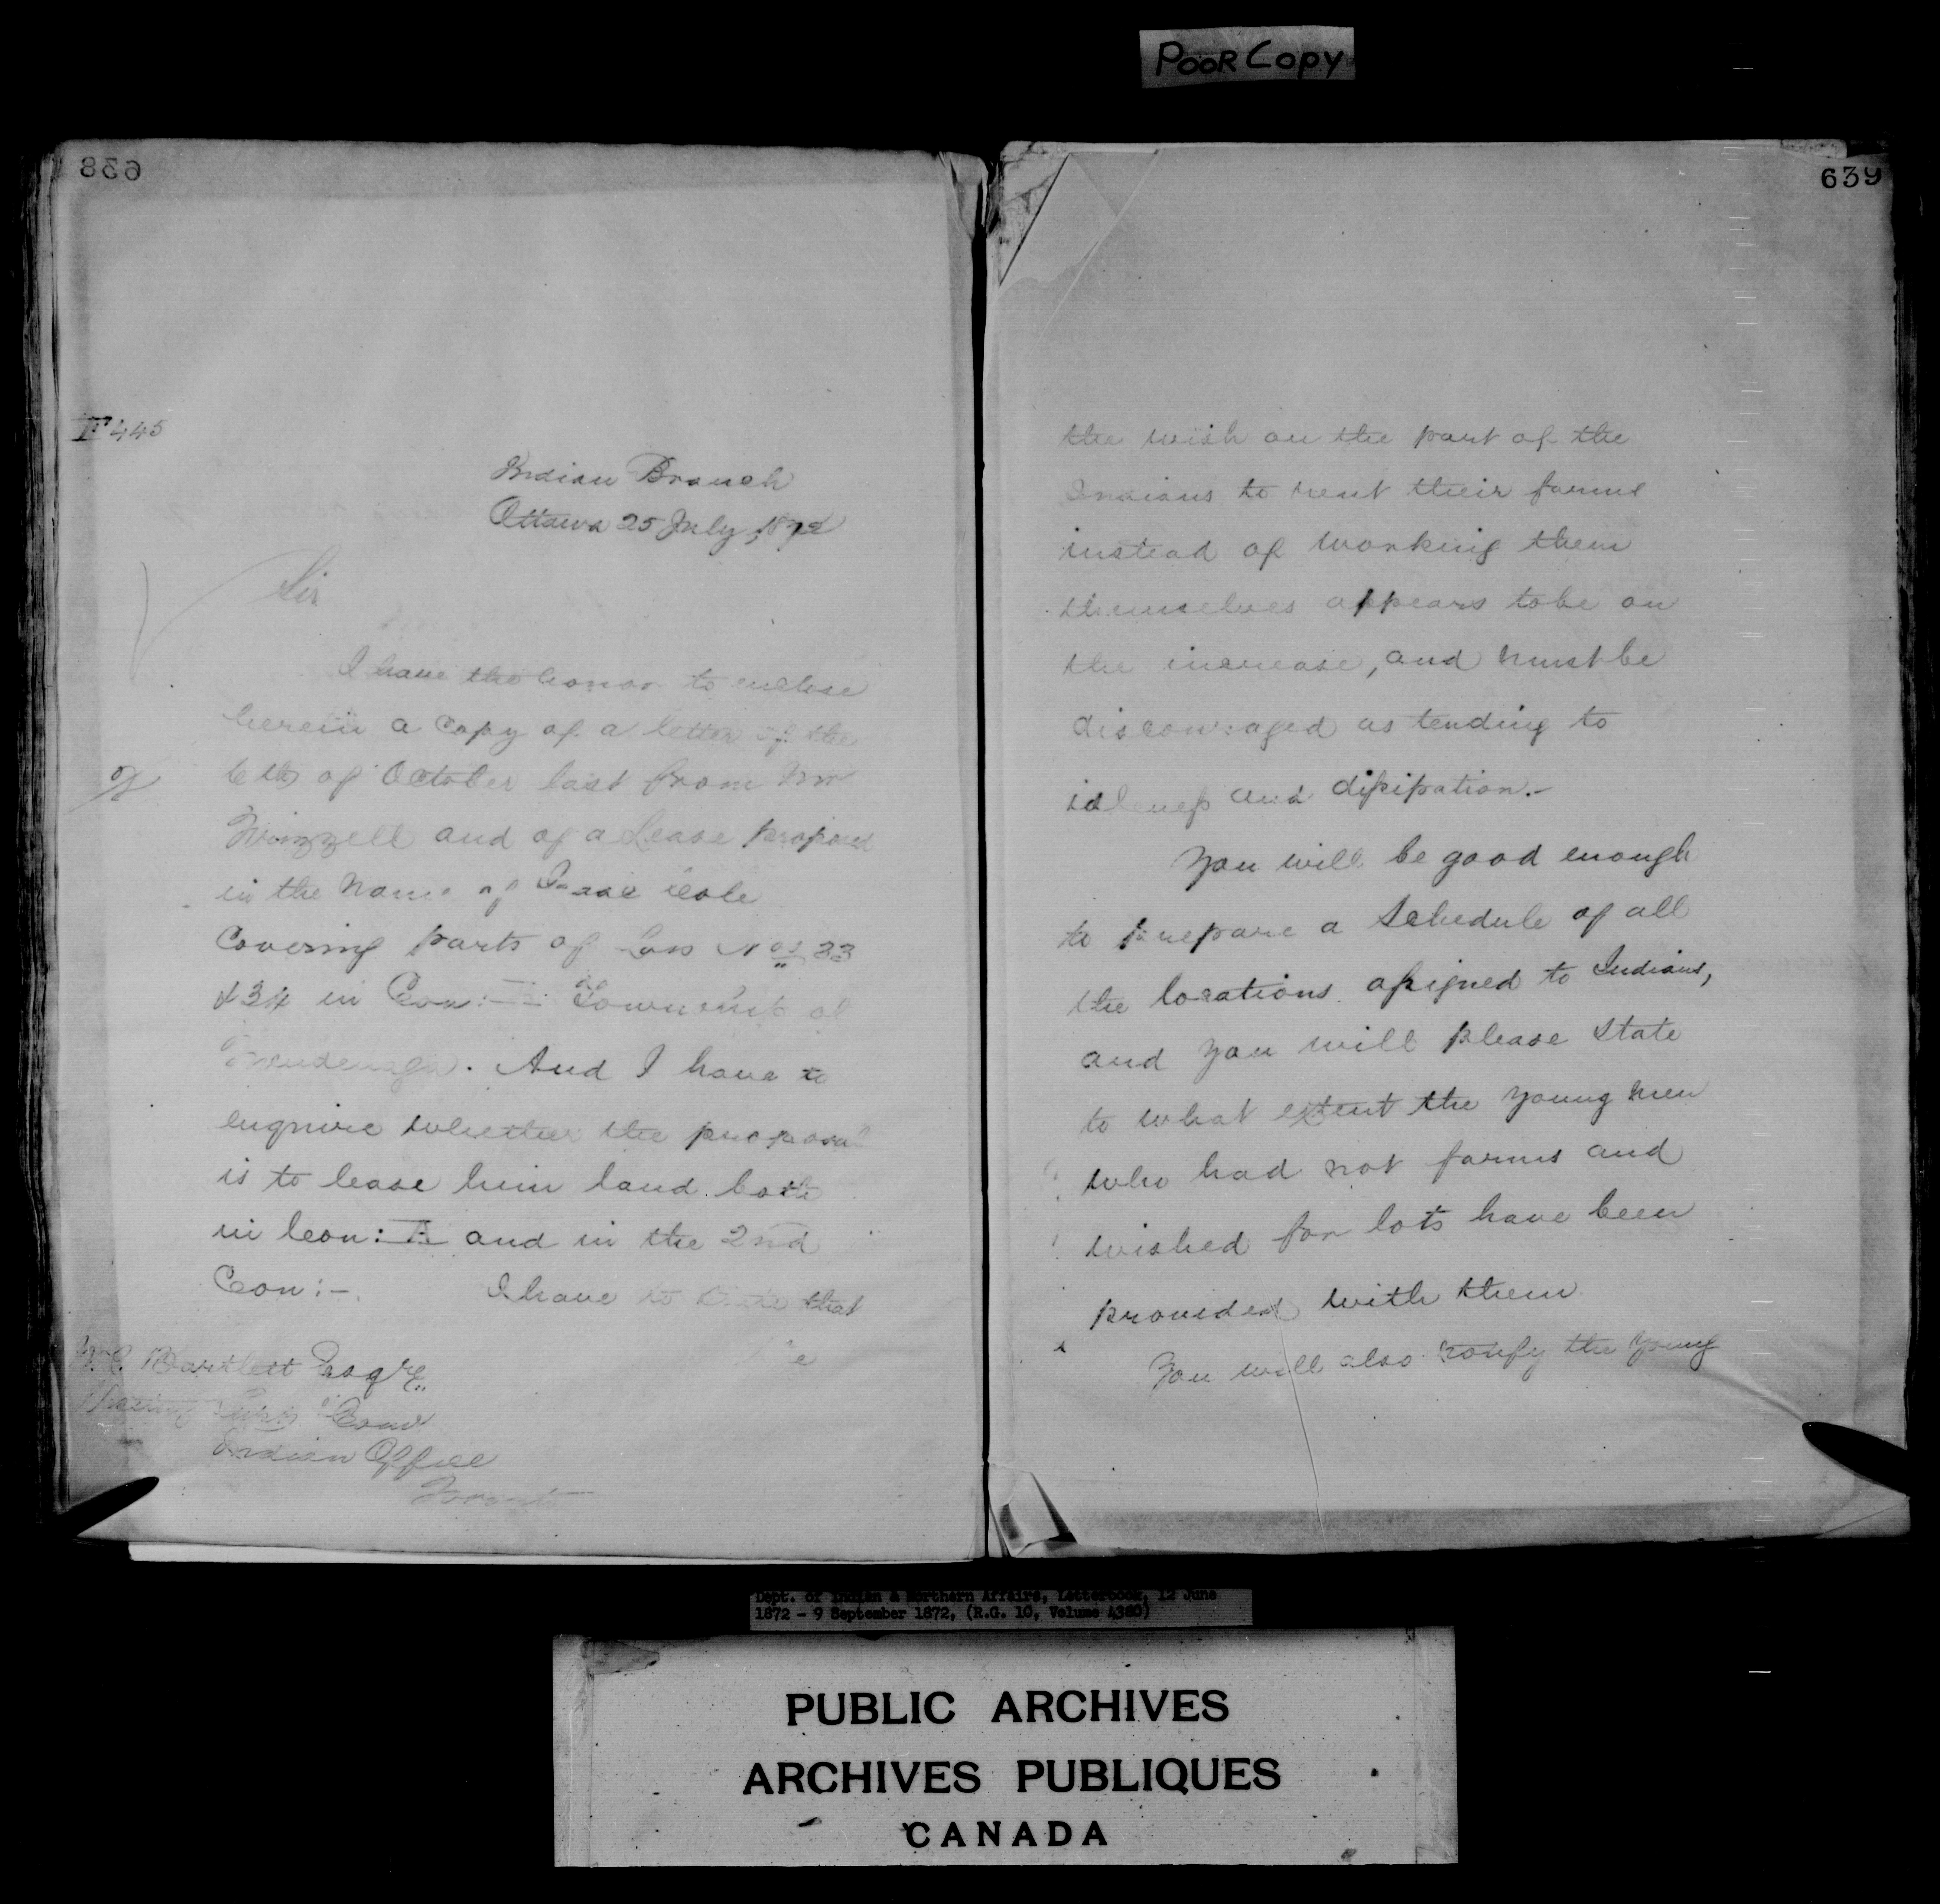 POOR COPY
638
445
Indian Branch
Ottawa 25 July, 1872
Sir
I have the honor to enclose
herein a Copy of a letter of the
6th of October last from Mr
and of a Lease proposed
in the Name of Isaac Cole
Covering parts of Lots Nos 33
& 34 in Con: A Township of
Tyendenaga. And I have to
enquire whether the proposal
is to lease him land both
in Con: A and in the 2nd
Con:-. I have to state that
Bartlett Esqre
Indian Office
Toronto
639
the wish on the part of the
Indians to rent their farms
instead of working them
themselves appears to be on
the increase, and must be
discouraged as tending to
idleness and dissipation.-
You will be good enough
to prepare a Schedule of all
the locations assigned to Indians,
and you will please State
to what extent the young men
who had not farms and
wished for lots have been
provided with them
You will also notify the young
Dept. of Indian & Northern Affairs, Letterbook, 12 June
1872 - 9 September 1872, (R.G. 10, Volume 4380)
PUBLIC ARCHIVES
ARCHIVES PUBLIQUES
CANADA